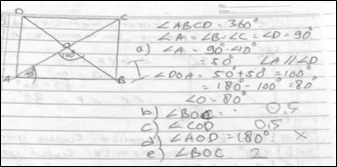 D C
O
100°
A 40 B
∠ABCD = 360°
∠A = ∠B = ∠C = ∠D = 90°
a) ∠A = 90° - 40°
= 50° ∠A // ∠D
∠DOA = 50° + 50° = 100°
= 180° - 100° = 80°
∠O = 80°
b) ∠BOC 0,5
c) ∠COD 0,5
d) ∠AOD = 180° ×
e) ∠BOC 2